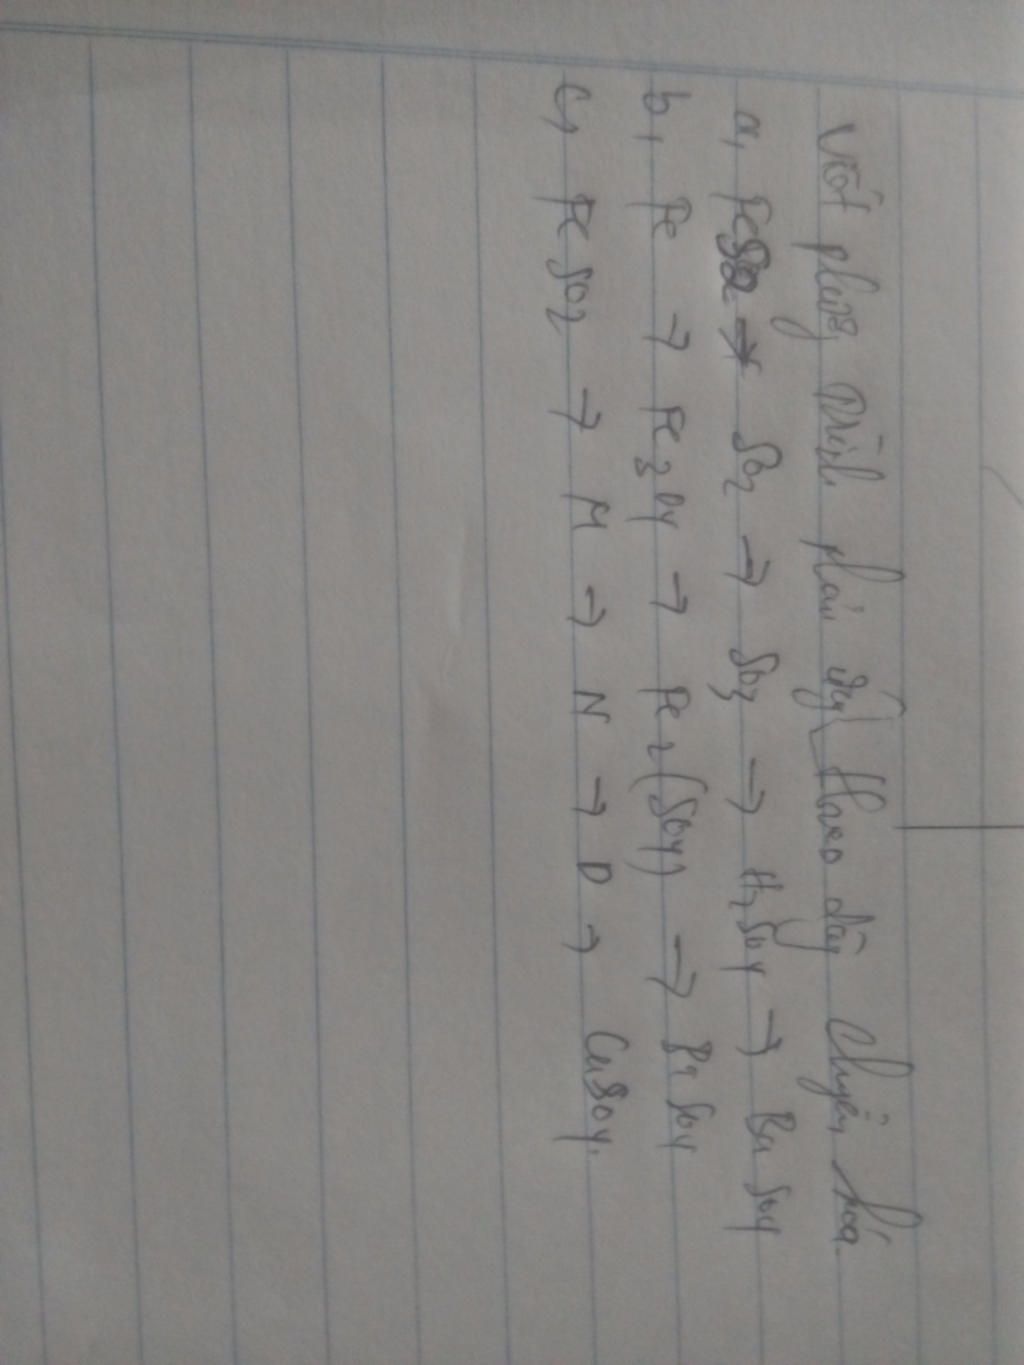 Viết phương trình phản ứng theo dãy chuyển hóa.
a, → SO2 → SO3 → H2SO4 → BaSO4
b, Fe → Fe3O4 → Fe2(SO4) → BaSO4
c, FeSO2 → M → N → D → CuSO4.